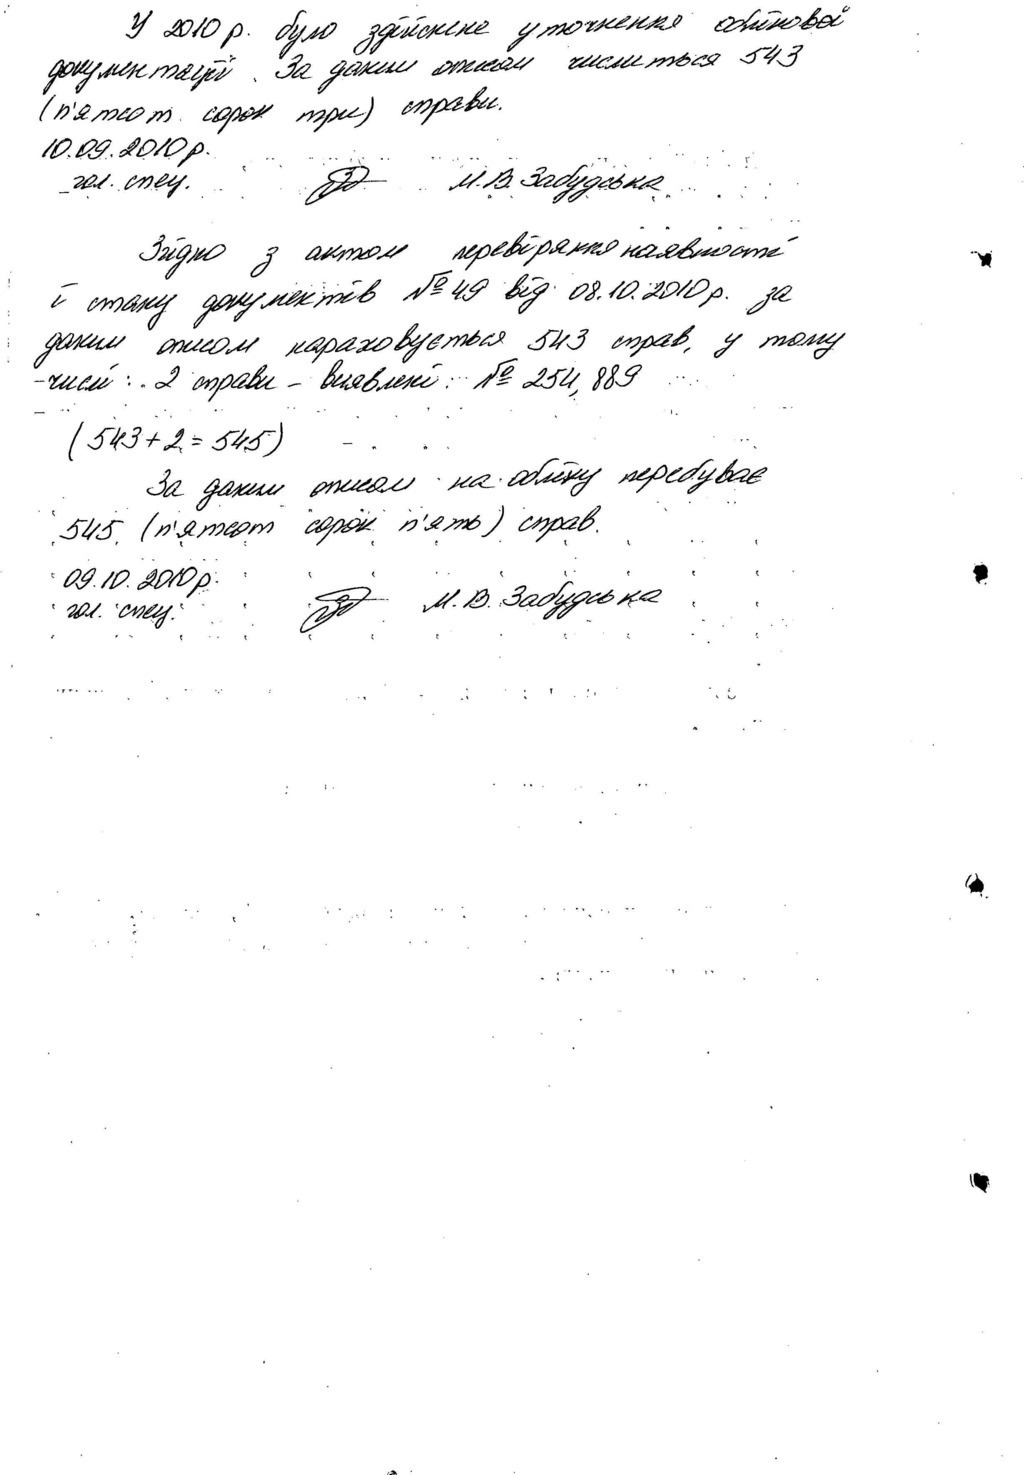 У 2010 р. було здійснене уточнення облікової
документації. За даним описом числиться 543
(п'ятсот сорок три) справи.
10.09.2010 р.
гол. спец. М.В. Забудська
Згідно з актом перевіряння наявності
і стану документів № 49 від 08.10.2010 р. за
даним описом нараховується 543 справ, у тому
числі: 2 справи – виявлені: № 254, 889
(543 + 2 = 545)
За даним описом на обліку перебуває
545 (п'ятсот сорок п'ять) справ.
09.10.2010 р.
гол. спец. М.В. Забудська